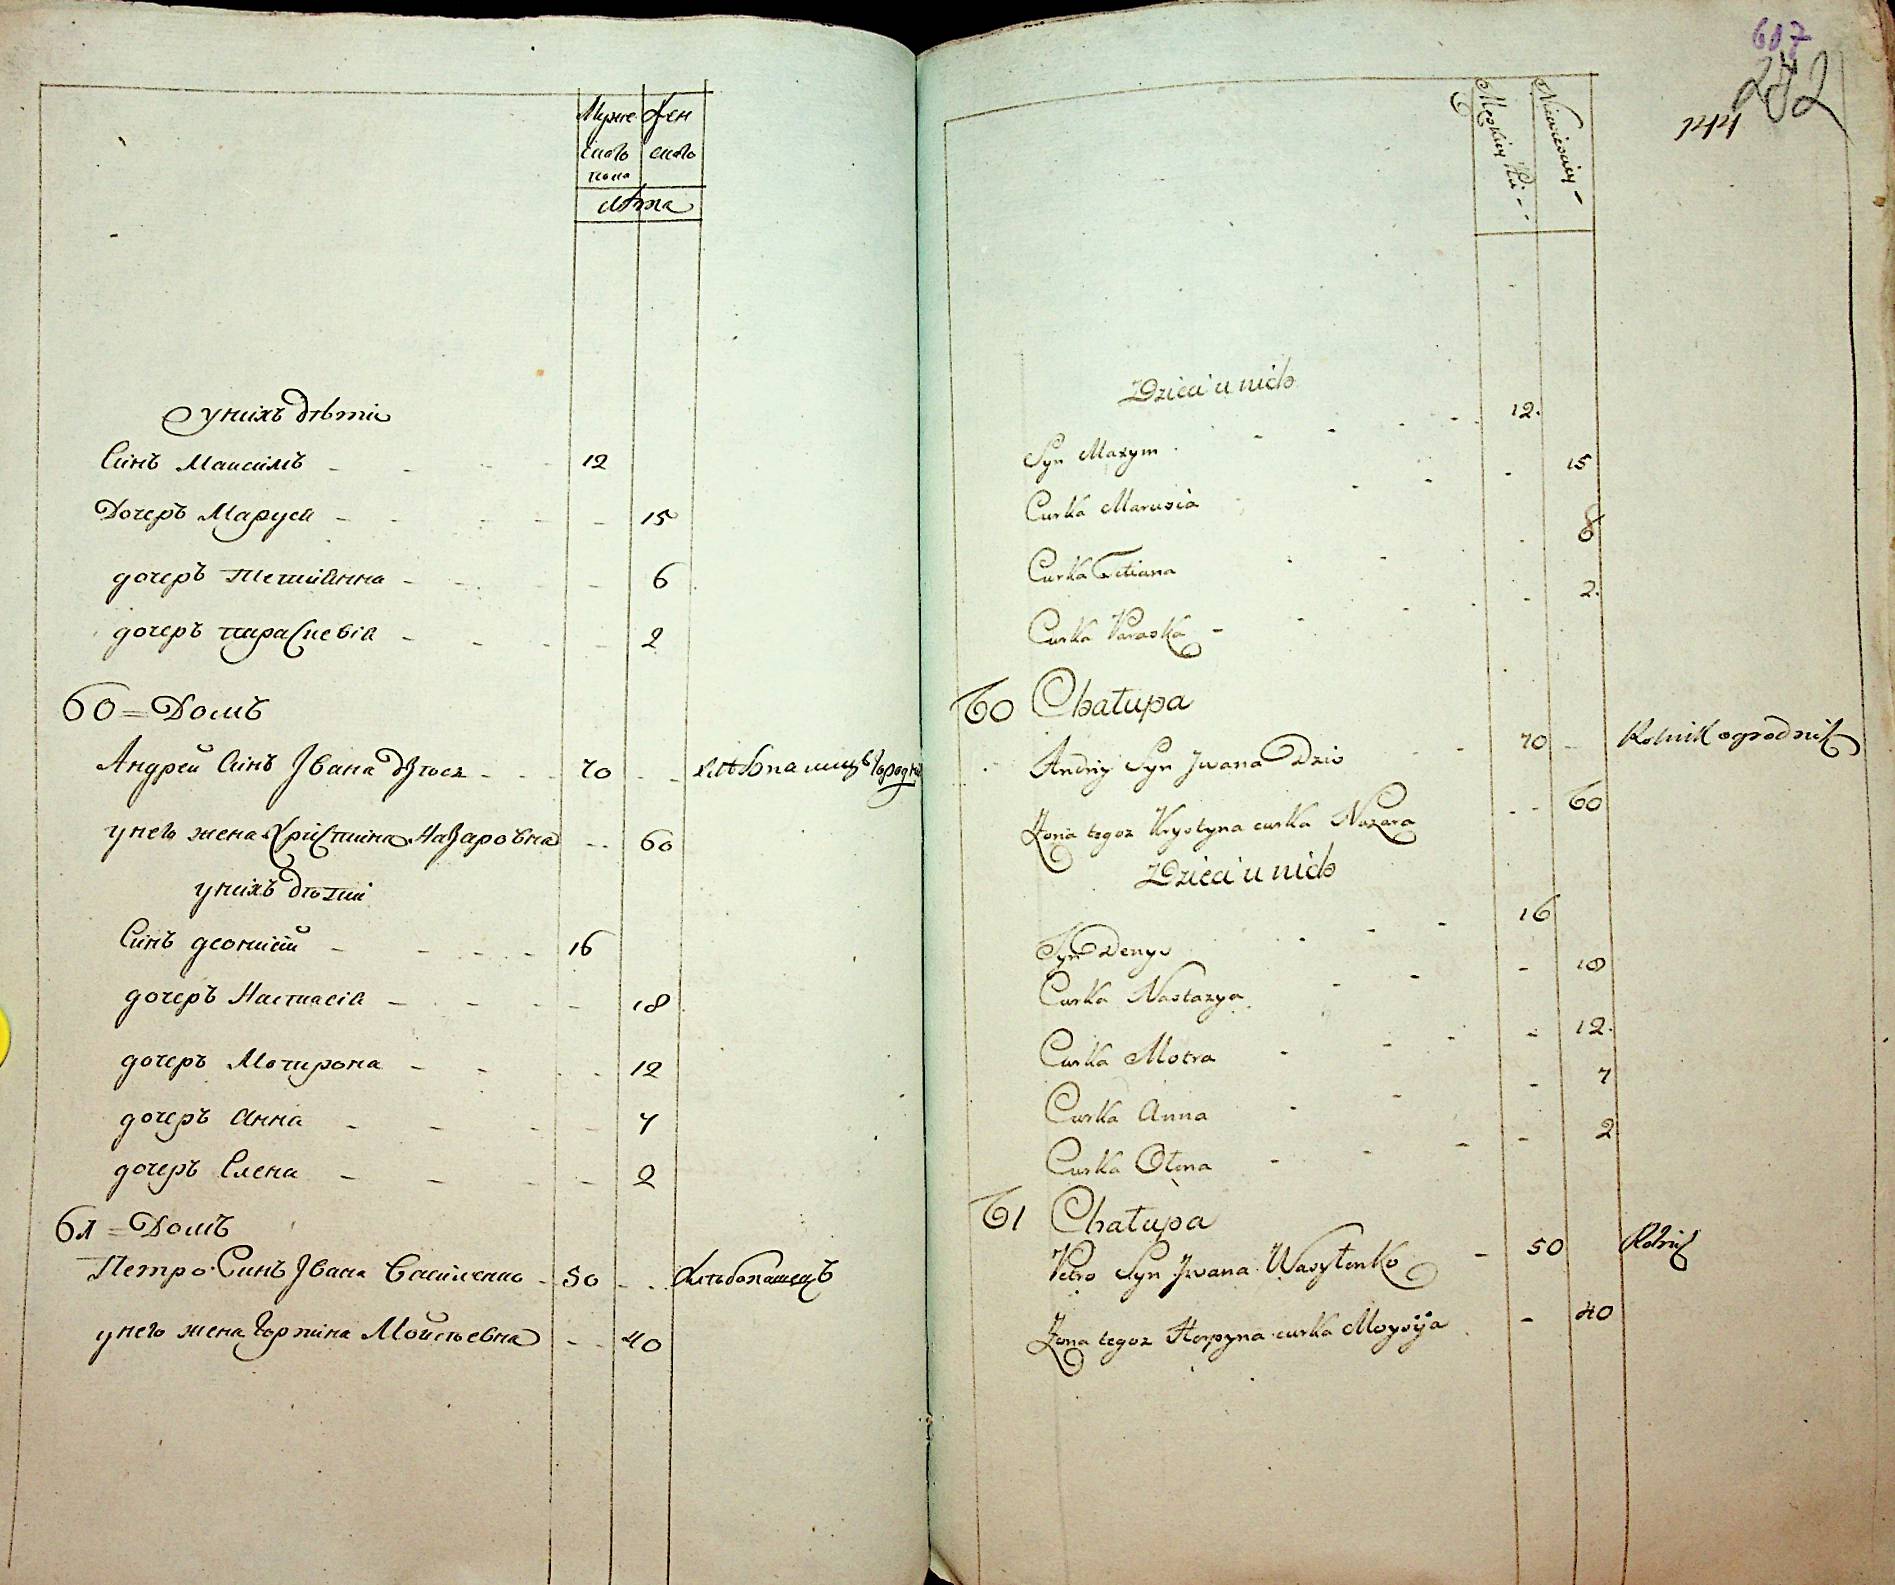 Муже
ского
пола
Жен
ского
лѣта
у нихъ дѣти
Синъ Максимъ - - - - 12
Дочеръ Маруся - - - - - 15
дочеръ Тетиянна - - - - 6
дочеръ параскевія - - - - 2
60 = Домъ
Андрей Синъ Івана - - - 70 - - хлѣбопашецъ
у него жена Христина Назаровна - - 60
у нихъ дѣти
Синъ деонисій - - - - - 16
дочеръ Настасія - - - - - 18
дочеръ Мотирона - - - - 12
дочеръ Анна - - - - 7
дочеръ Елена - - - - 2
61 = Домъ
Петро Синъ Івана Василенко - 50 - - хлѣбопашецъ
у него жена Горпина Мойсѣевна - - 40
607
242
144
Męskiey
Niewieściey -
Dzieci u nich
Syn Maxym - - - - - 12.
Curka Marusia - - - 15
Curka Tetiana - - - 8
Curka Paraska - - - - - 2.
60 Chałupa
Andriy Syn Jwana Dzio - - 70 - Rolnik ogrodnik
Żona tegoz Krystyna curka Nazara - - 60
Dzieci u nich
Syn Denys - - - 16
Curka Nastazya - - - 18
Curka Motra - - - - 12.
Curka Anna - - - 7
Curka Ołena - - - - 2
61 Chałupa
Petro Syn Jwana Wasylenko - 50 Rolnik
Żona tegoz Horpyna curka Moysija - 40